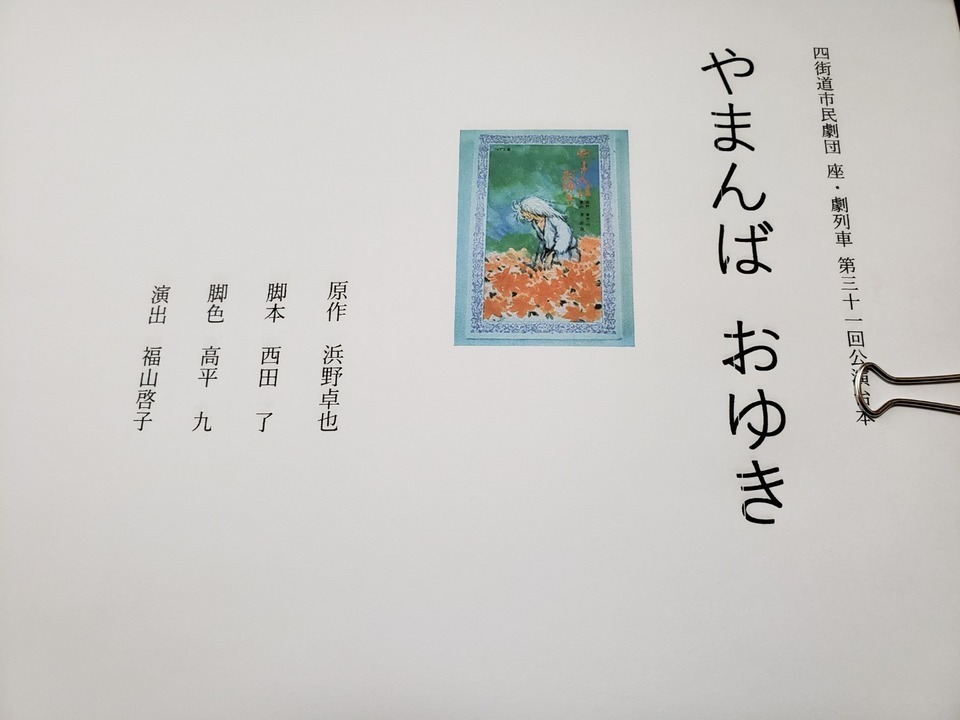 四街道市民劇団 座・劇列車 第三十一回公演台本
やまんば おゆき
原作 浜野卓也
脚本 西田 了
脚色 高平 九
演出 福山啓子